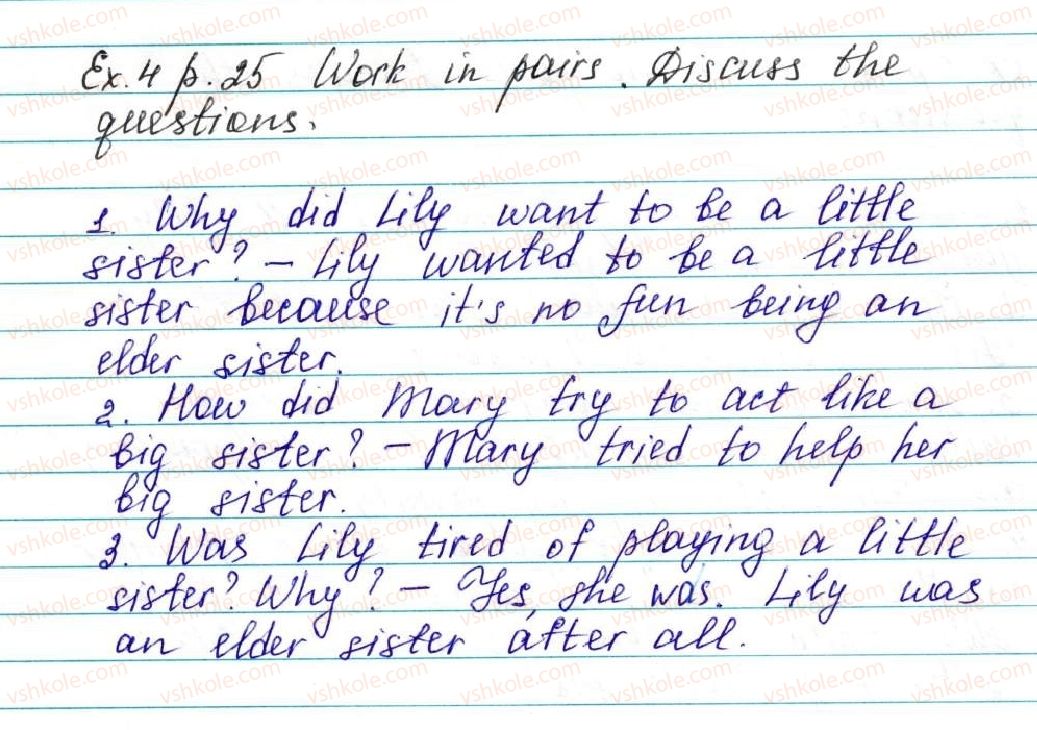 Ex. 4 p. 25 Work in pairs. Discuss the
questions.
1. Why did Lily want to be a little
sister? – Lily wanted to be a little
sister because it's no fun being an
elder sister.
2. How did Mary try to act like a
big sister? – Mary tried to help her
big sister.
3. Was Lily tired of playing a little
sister? Why? – Yes, she was. Lily was
an elder sister after all.